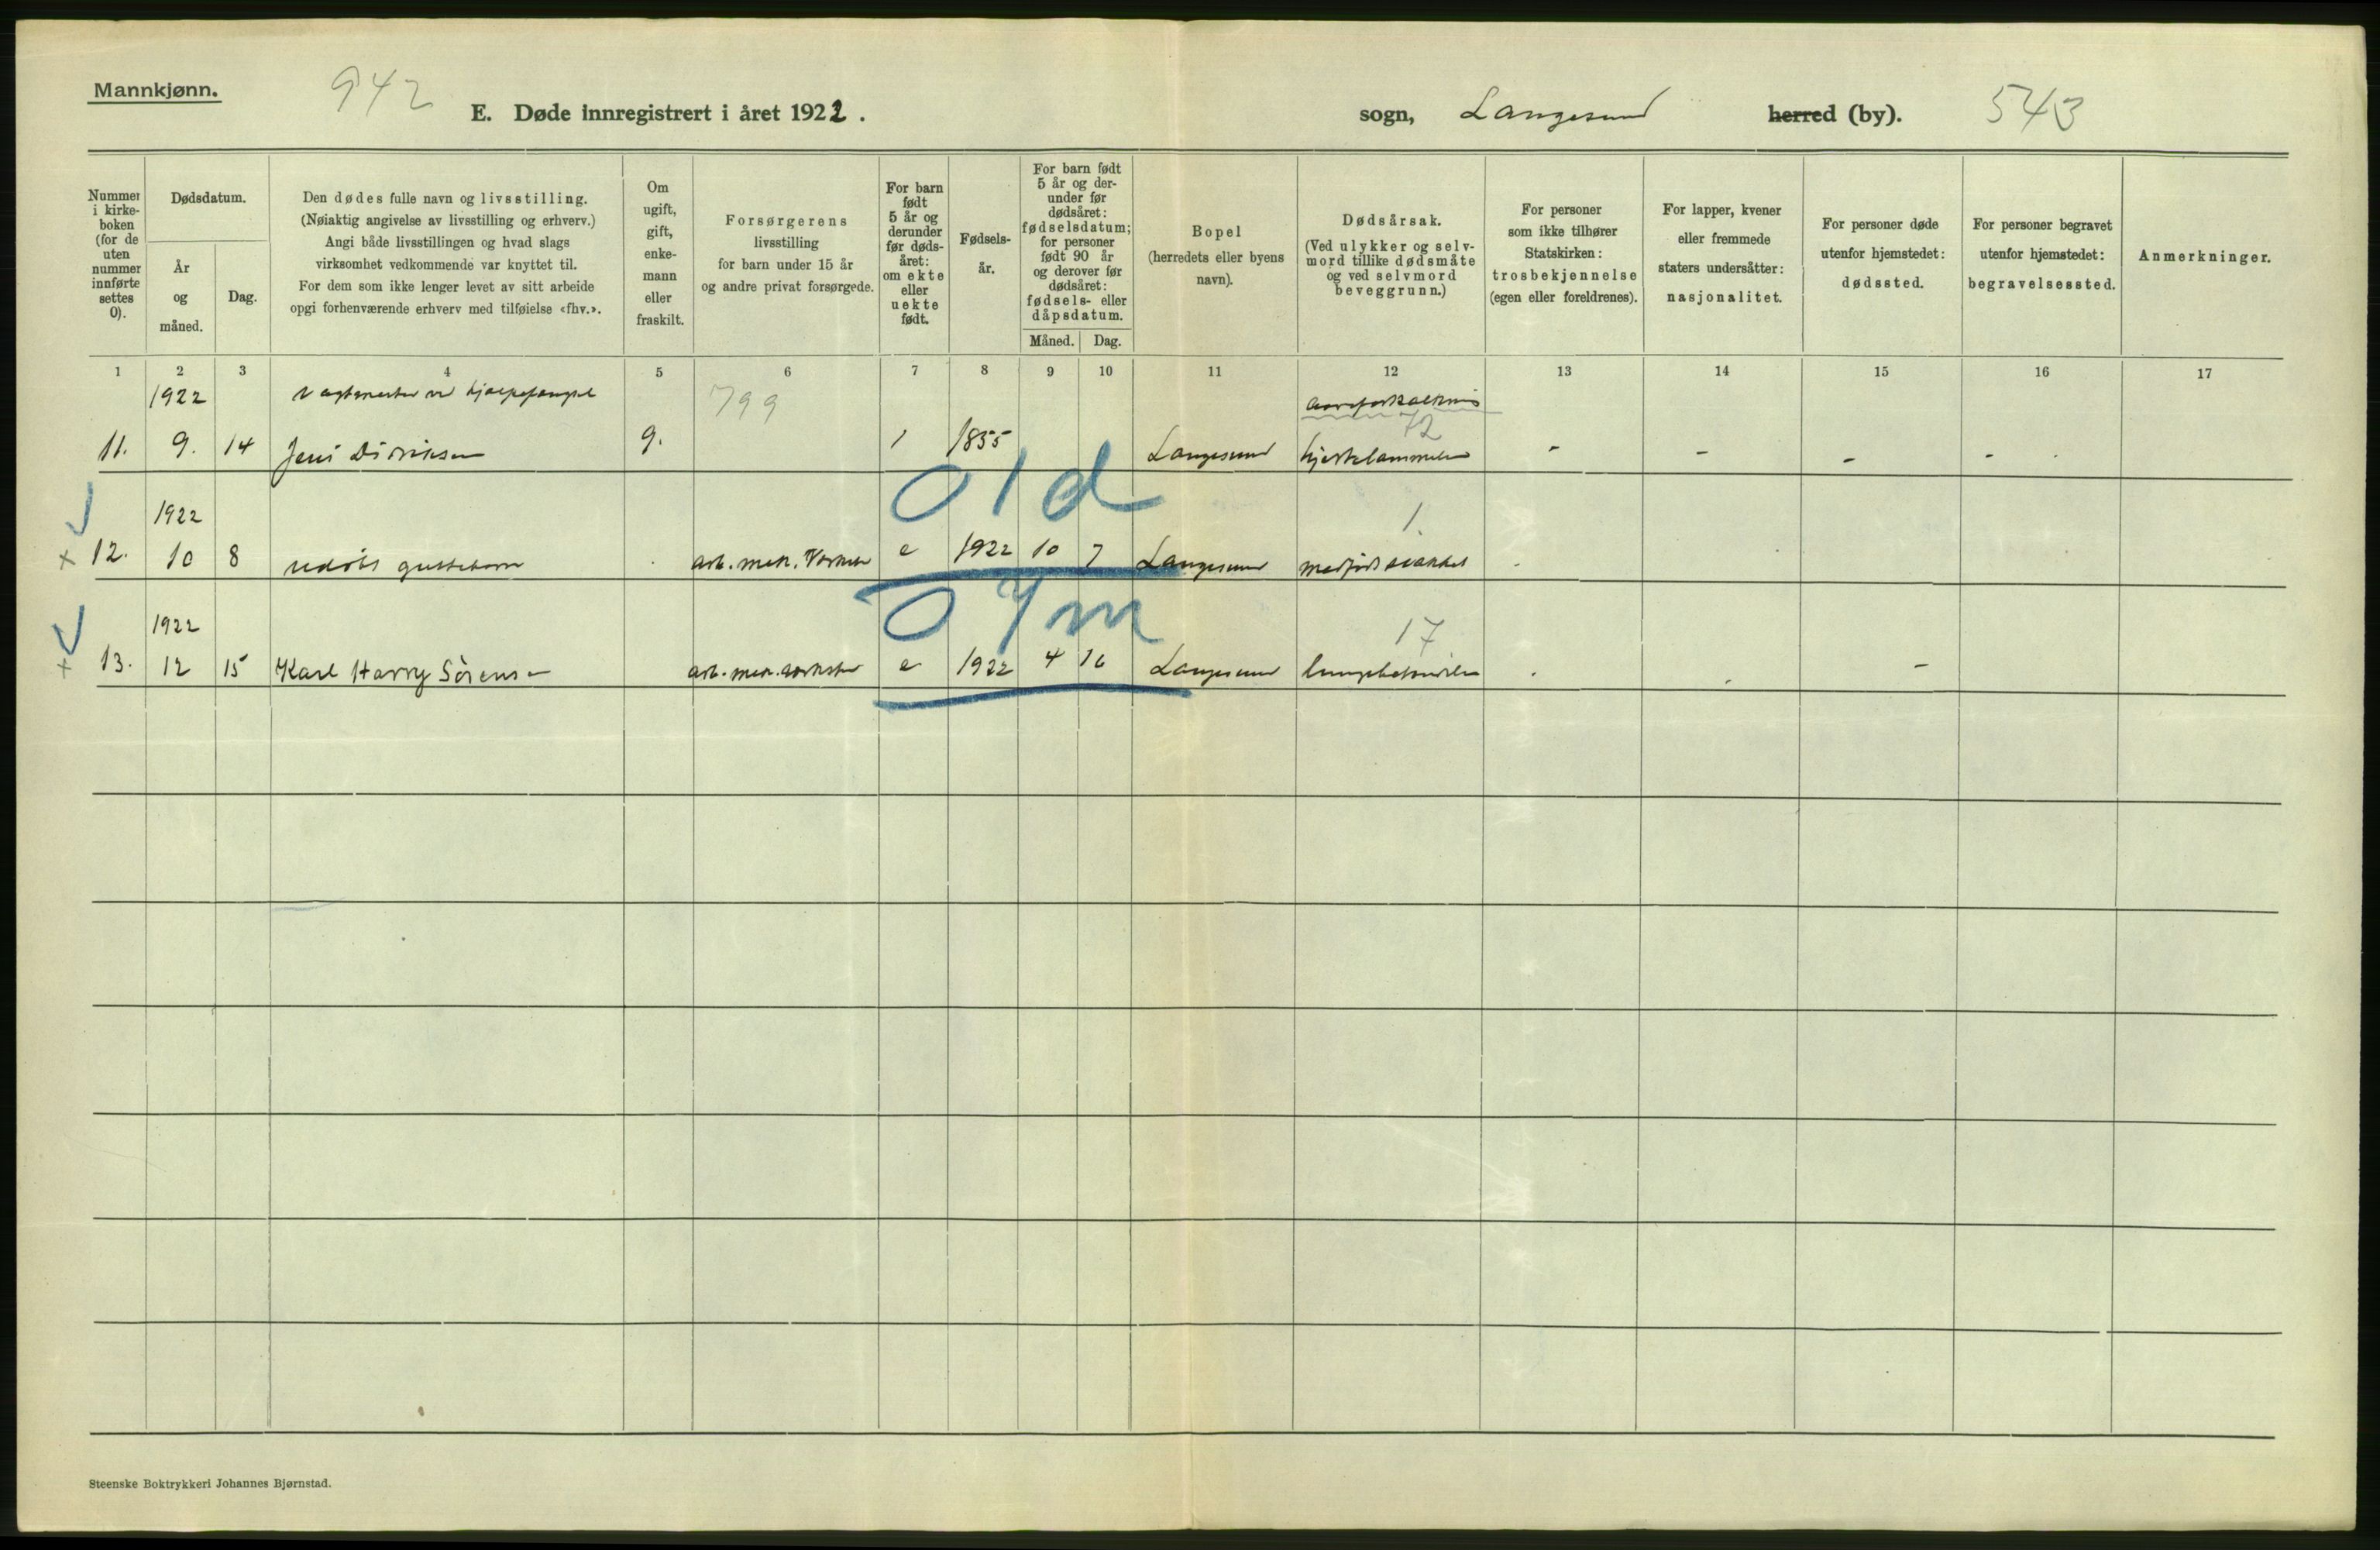 Mannkjønn.
942
E. Døde innregistrert i året 1922.
sogn, Langesund herred (by).
543
Nummer i kirkeboken (for de uten nummer innførte settes 0).
Dødsdatum.
År og måned.
Dag.
Den dødes fulle navn og livsstilling.
(Nøiaktig angivelse av livsstilling og erhverv.)
Angi både livsstillingen og hvad slags
virksomhet vedkommende var knyttet til.
For dem som ikke lenger levet av sitt arbeide
opgi forhenværende erhverv med tilføielse «fhv.».
Om ugift, gift, enkemann eller fraskilt.
Forsørgerens
livsstilling
for barn under 15 år
og andre privat forsørgede.
For barn født 5 år og derunder før dødsåret: om ekte eller uekte født.
Fødselsår.
For barn født 5 år og derunder før dødsåret: fødselsdatum; for personer født 90 år og derover før dødsåret: fødsels- eller dåpsdatum.
Måned. Dag.
Bopel
(herredets eller byens
navn).
Dødsårsak.
(Ved ulykker og selvmord tillike dødsmåte og ved selvmord beveggrunn.)
For personer
som ikke tilhører
Statskirken:
trosbekjennelse
(egen eller foreldrenes).
For lapper, kvener
eller fremmede
staters undersåtter:
nasjonalitet.
For personer døde
utenfor hjemstedet:
dødssted.
For personer begravet
utenfor hjemstedet:
begravelsessted.
Anmerkninger.
1 2 3 4 5 6 7 8 9 10 11 12 13 14 15 16 17
1922 799
72
11. 9. 14 Jens Diriksen g. 1 1855 Langesund hjertelammelse - - - -
01d
1922 1.
12. 10 8 udøbt guttebarn arb. mek. Verksted e 1922 10 7 Langesund medfødt svakhet
07m
1922 17
13. 12 15 Karl Harry Sörensen arb. mek. verksted e 1922 4 16 Langesund lungebetendelse -
Steenske Boktrykkeri Johannes Bjørnstad.